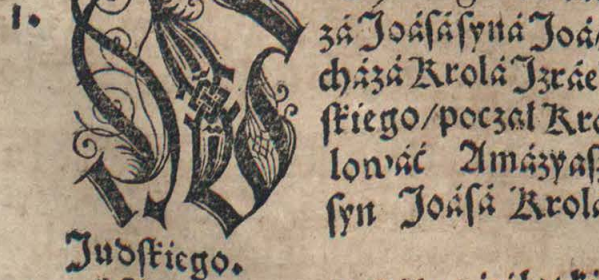 1.
zá Joásá syná Joá/
cházá Krolá Jzráe
skiego/ począł Kro
lowáć Amázyasz
syn Joásá Krolá
Judskiego.